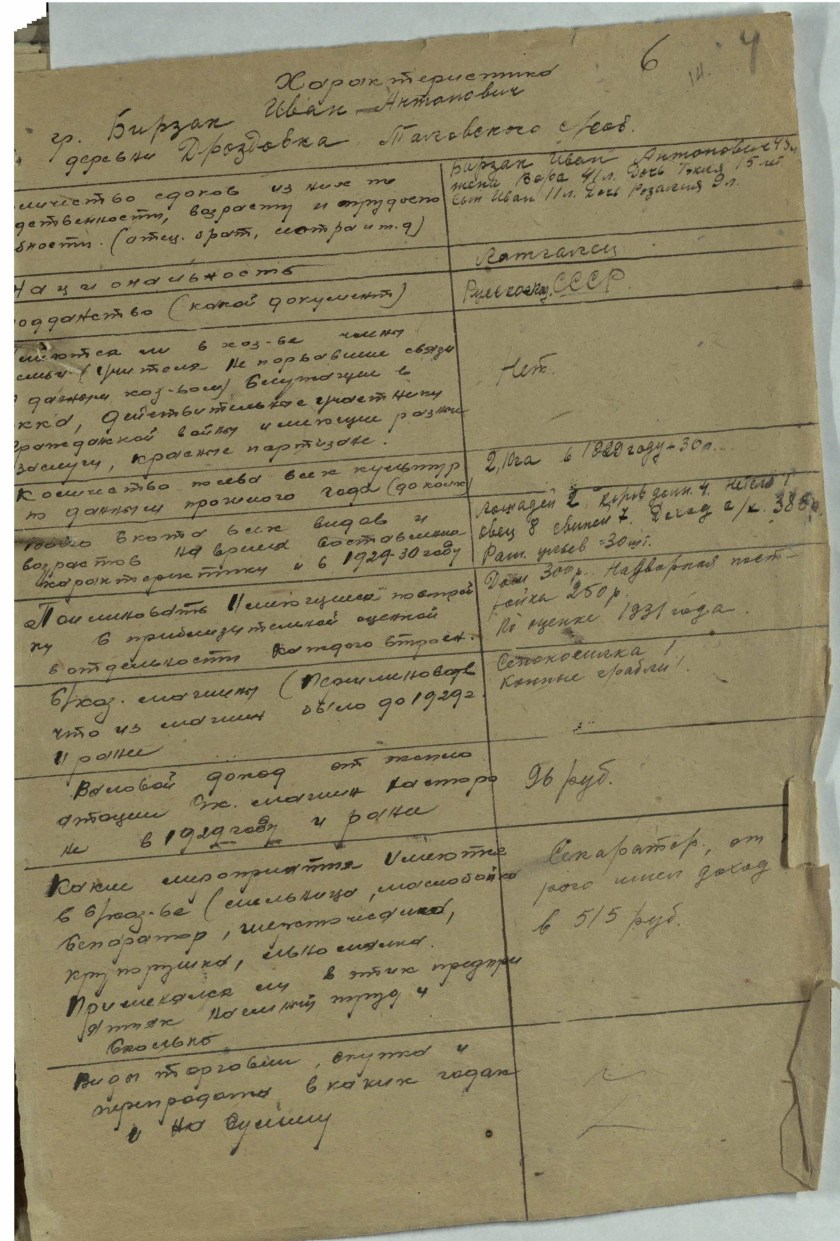 6 4
14.
Характеристика
гр. Бирзак Иван Антонович
деревни Дроздовка Таловского с/сов.
оличество едоков из них по
дственности, возрасту и трудоспо
бности. (отец. брат, сестра и т.д)
Бирзак Иван Антонович 43
жена Вера 41 л. Дочь Текля 15 лет
сын Иван 11 л. Дочь Розалия 9 л.
Национальность
Латгалец
одданство (какой документ)
СССР.
меются ли в хоз-ве члены
семьи (учителя не порвавшие связи
с данным хоз-вом) служащие в
ркка, действительные участники
гражданской войны имеющие разные
заслуги, красные партизане.
Нет.
Количество посева всех культур
по данным прошлого года (до колх)
2,10га в 1929 году - 30р.
скота всех видов и
возрастов на время составления
характеристики и в 1929-30 году
Лошадей 2. Коров дойн. 4. нетели 1
овец 8 свиней 7. Доход с/х. 386р
Раст. ульев - 30 шт.
Поименовать имеющиеся построй
ку в приблизительной оценкой
в отдельности каждого строен.
Дом 300 р. Надворная пост-
ройка 250 р.
По оценке 1931 года.
с/хоз. машины (поименовать
что из машин было до 1929г.
и ране
Сенокосилка 1
Конные грабли 1.
Валовой доход от экспло
атации с/х. машин на сторо
не в 1929 году и ране
96 руб.
Какие мероприятия имеются
в с/хоз-ве (мельница, маслобойка
сепоратор, шерсточесалка,
крупорушка, льномялка.
Применялся ли в этих предпри
ятиях наемный труд и
сколько
Сепаратор, от
рого имел доход
в 515 руб.
Виды торговли, скупка и
перепродажа в каких годах
и на сумму